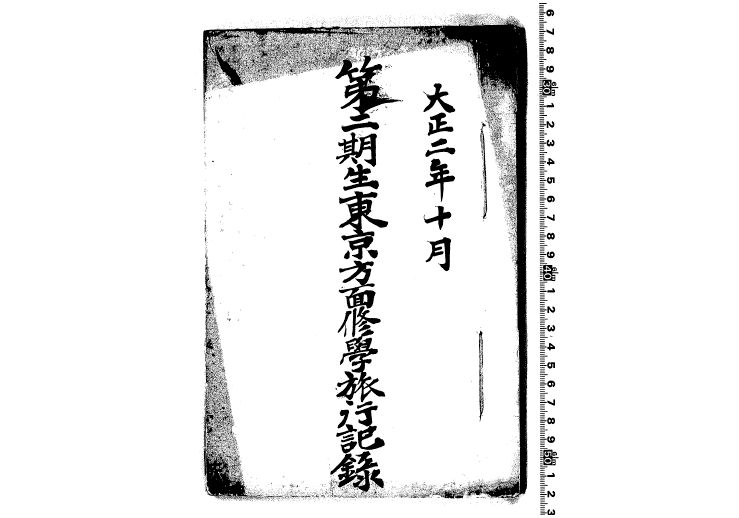 大正二年十月
第二期生東京方面修學旅行記錄
6 7 8 9 30 1 2 3 4 5 6 7 8 9 40 1 2 3 4 5 6 7 8 9 50 1 2 3